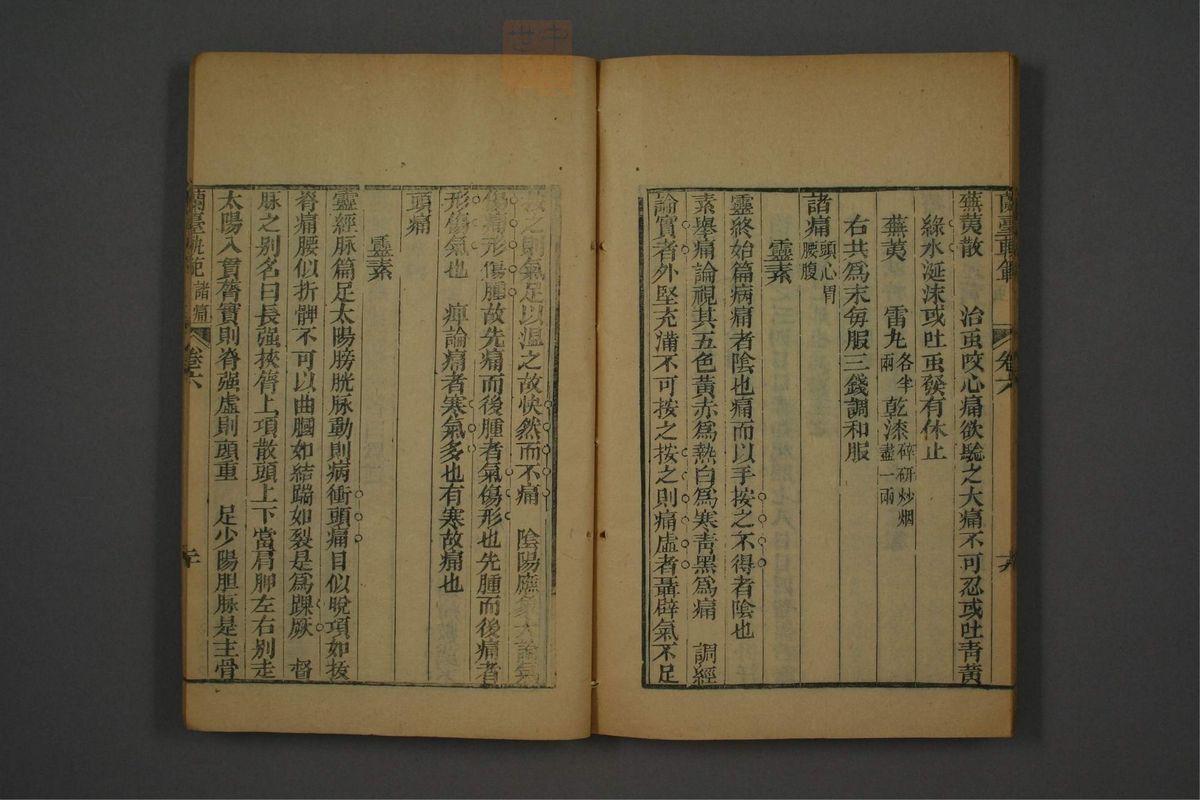 蘭臺軌範
卷六
十九
蕪荑散　治䖝咬心痛欲驗之大痛不可忍或吐青黃
綠水涎沫或吐䖝發有休止
蕪荑　雷丸各半兩　乾漆碎研炒烟盡一兩
右共爲末每服三錢調和服
諸痛頭心胃腰腹
靈素
靈終始篇病痛者陰也痛而以手按之不得者陰也
素舉痛論視其五色黃赤爲熱白爲寒靑黑爲痛　調經
論實者外堅充滿不可按之按之則痛虛者聶辟氣不足
按之則氣足以溫之故快然而不痛　陰陽應象大論氣
傷痛形傷腫故先痛而後腫者氣傷形也先腫而後痛者
形傷氣也　痺論痛者寒氣多也有寒故痛也
頭痛
靈素
靈經脉篇足太陽膀胱脉動則病衝頭痛目似脫項如拔
脊痛腰似折髀不可以曲膕如結踹如裂是爲踝厥　督
脉之别名曰長强挾膂上項散頭上下當肩胛左右别走
太陽入貫膂實則脊强虛則頭重　足少陽胆脉是主骨
蘭臺軌範　諸痛
卷六
二十